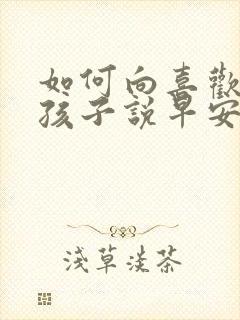 如何向喜歡
孩子說早安
淺草淡茶